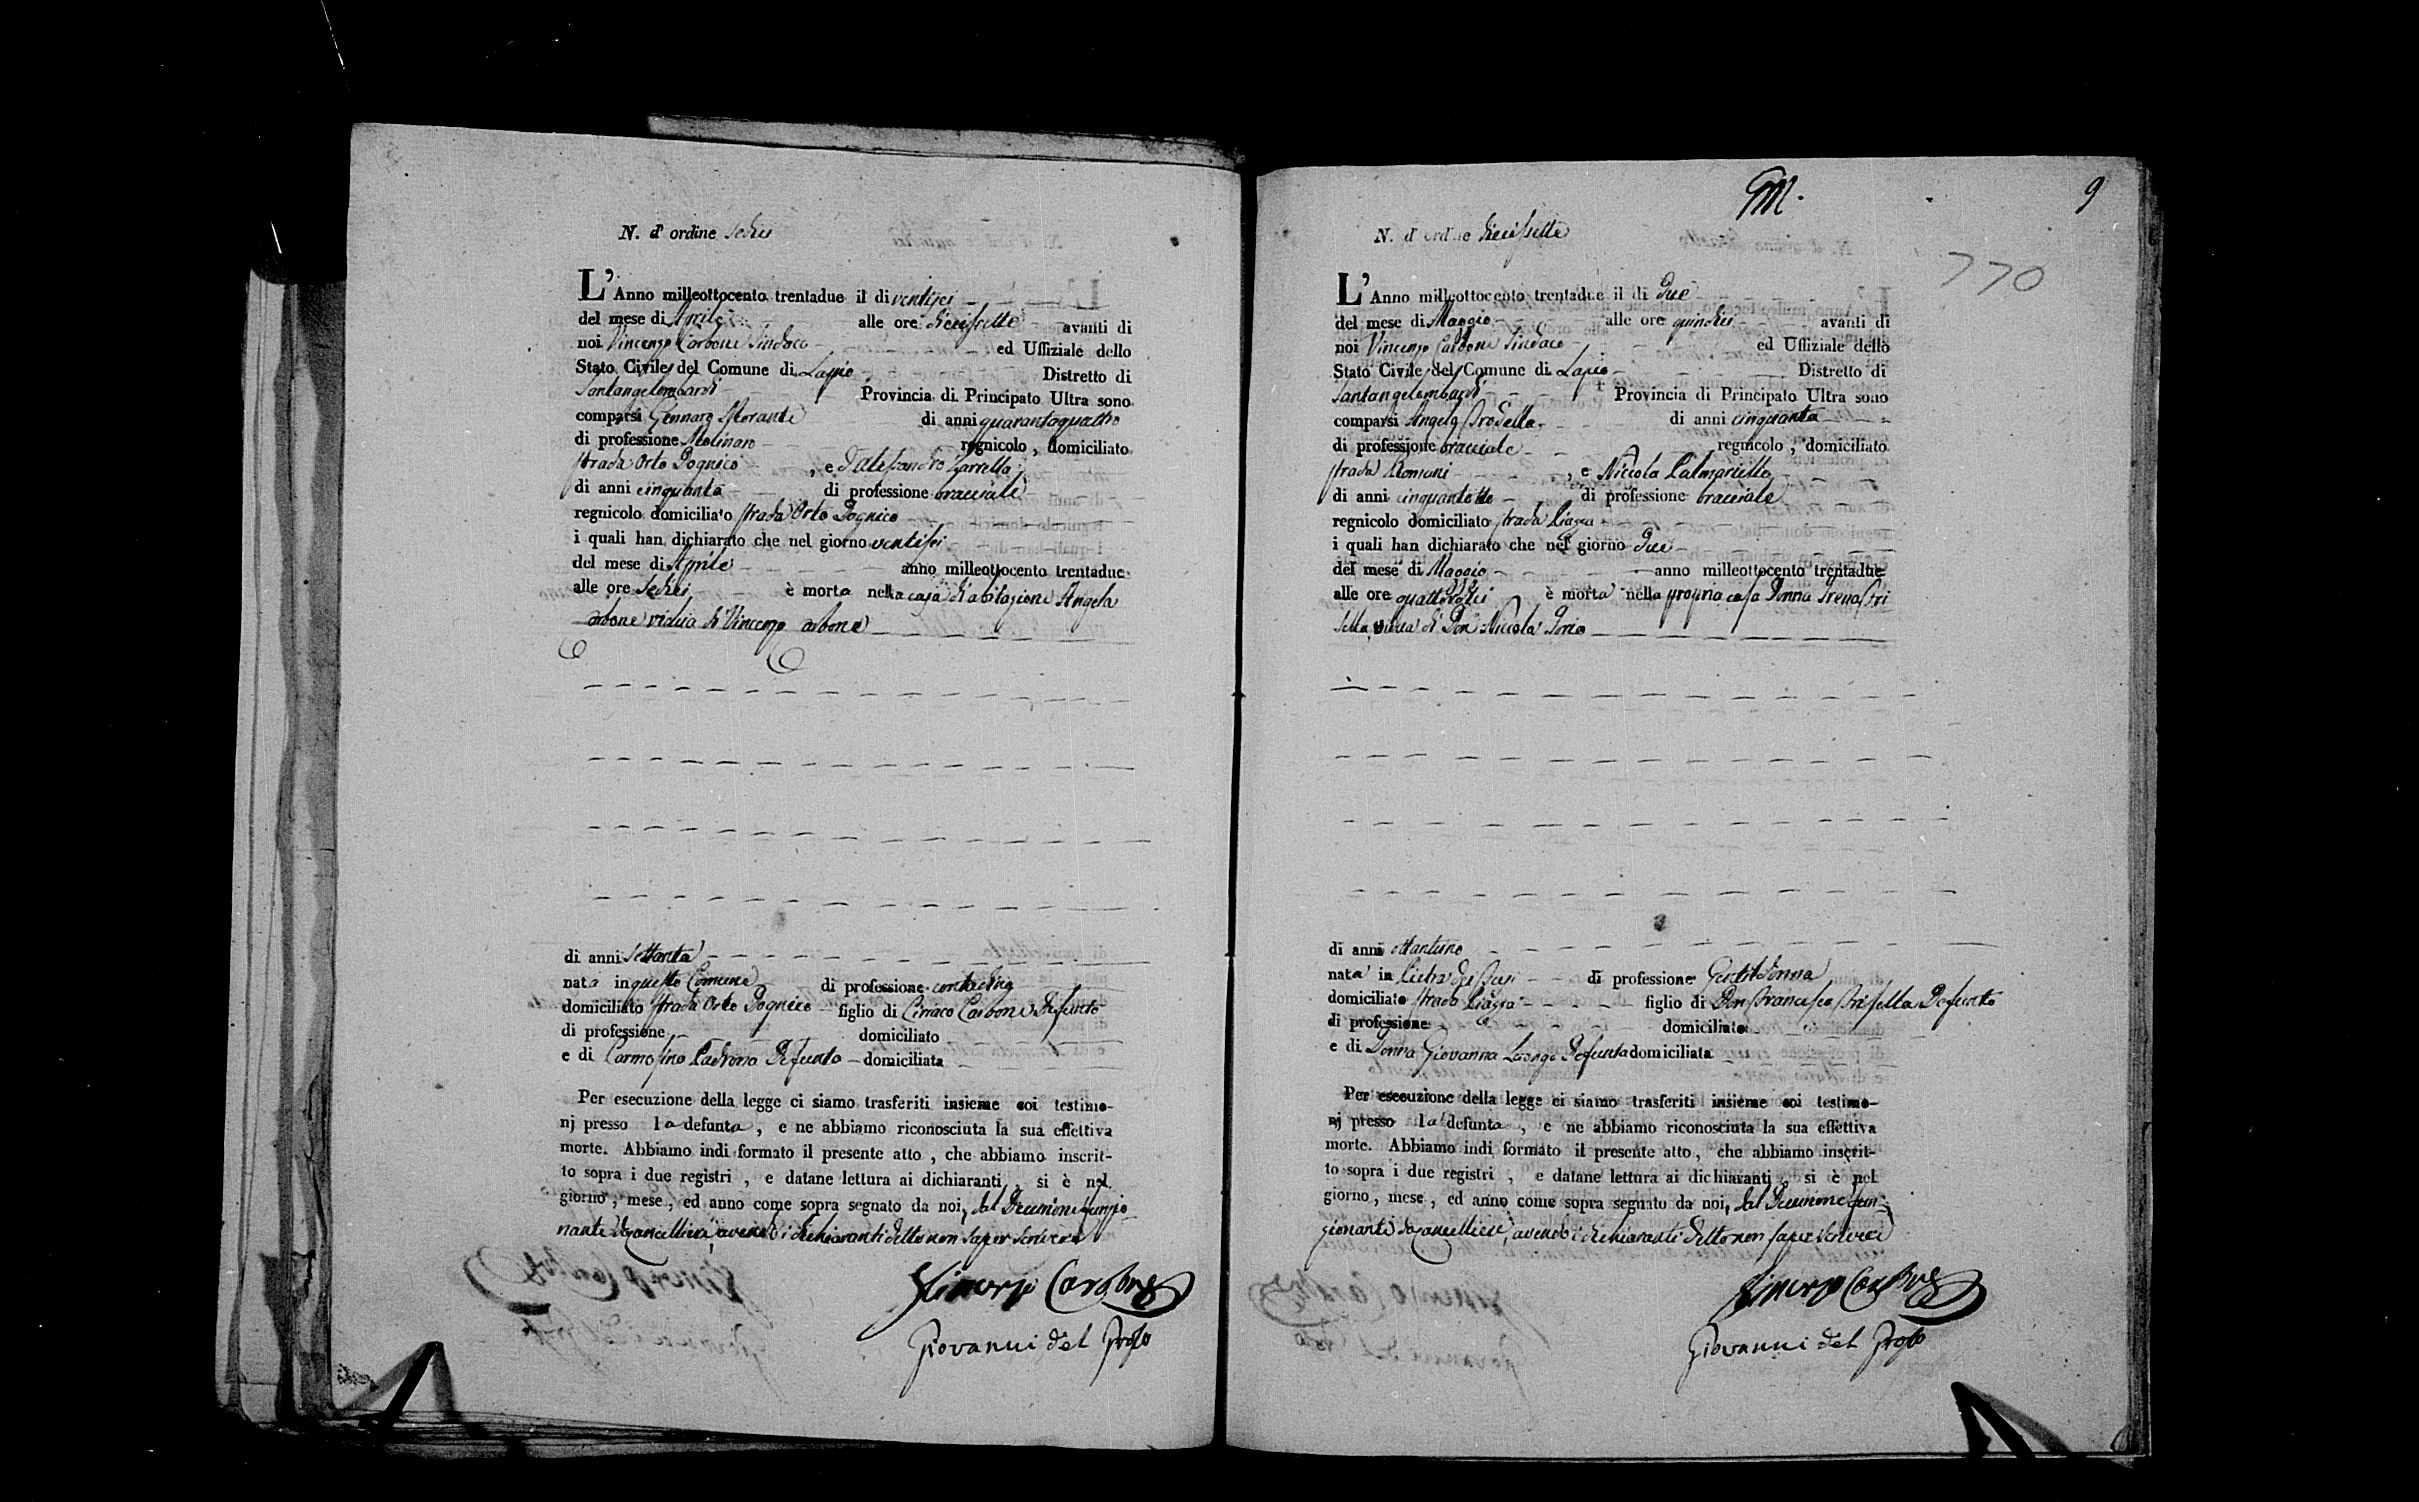 N. d' ordine Sedici
L'Anno milleottocento trentadue il di ventisei
del mese di Aprile alle ore diecissette avanti di
noi Vincenzo Carbone Sindaco ed Uffiziale dello
Stato Civile del Comune di Lapio Distretto di
Santangelombardi Provincia di Principato Ultra sono
comparsi Gennaro Morante di anni quarantaquattro
di professione Molinaro regnicolo, domiciliato
strada Orto Dognico, e d'Alesandro Zarrella
di anni cinquanta di professione bracciale
regnicolo domiciliato strada Orto Dognico
i quali han dichiarato che nel giorno ventisei
del mese di Aprile anno milleottocento trentadue
alle ore Sedici è morta nella casa di abitazione Angela
Carbone vidua di Vincenzo Carbone
di anni Settanta
nata in questo Comune di professione contadina
domiciliato strada Orto Dognico figlio di Ciriaco Carbone defunto
di professione domiciliato
e di Carmosina Defunta domiciliata
Per esecuzione della legge ci siamo trasferiti insieme coi testimo-
nj presso la defunta, e ne abbiamo riconosciuta la sua effettiva
morte. Abbiamo indi formato il presente atto, che abbiamo inscrit-
to sopra i due registri, e datane lettura ai dichiaranti, si è nel
giorno, mese, ed anno come sopra segnato da noi, dal Decurione funzio-
nante da Cancelliere, avendo i dichiaranti detto non saper scrivere
Vincenzo Carbone
Giovanni del
M.
9
770
N. d' ordine diecissette
L'Anno milleottocento trentadue il di due
del mese di Maggio alle ore quindici avanti di
noi Vincenzo Carbone Sindaco ed Uffiziale dello
Stato Civile del Comune di Lapio Distretto di
Santangelombardi Provincia di Principato Ultra sono
comparsi Angelo di anni cinquanta
di professione bracciale regnicolo, domiciliato
strada Romani, e Niccola Palmariello
di anni cinquantotto di professione bracciale
regnicolo domiciliato strada Piazza
i quali han dichiarato che nel giorno due
del mese di Maggio anno milleottocento trentadue
alle ore quattordici è morta nella propria casa Donna Irena Fri
sella, vidua di Don Niccola
di anni ottantuno
nata in Pietra de Fusi di professione Gentildonna
domiciliato strada Piazza figlio di Don Francesco Frisella Defunto
di professione domiciliato
e di Donna Giovanna Luongo Defunta domiciliata
Per esecuzione della legge ci siamo trasferiti insieme coi testimo-
nj presso la defunta, e ne abbiamo riconosciuta la sua effettiva
morte. Abbiamo indi formato il presente atto, che abbiamo inscrit-
to sopra i due registri, e datane lettura ai dichiaranti, si è nel
giorno, mese, ed anno come sopra segnato da noi, dal Decurione fun-
zionante da Cancelliere, avendo i dichiaranti detto non saper scrivere
Vincenzo Carbone
Giovanni del